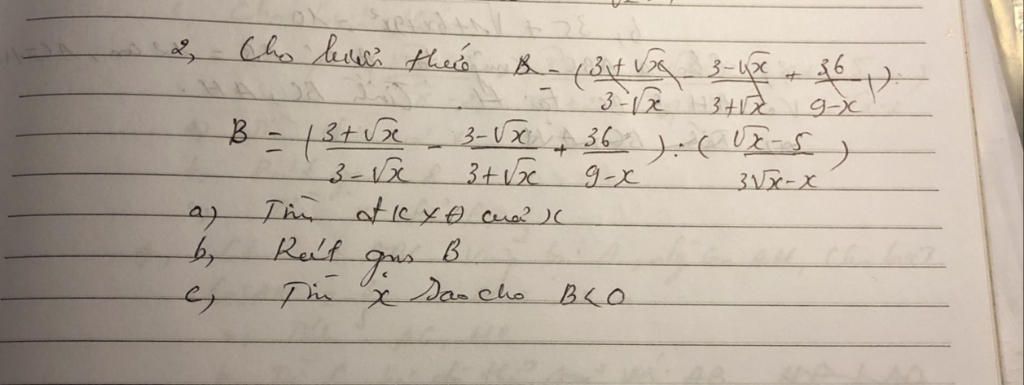 2, Cho biểu thức B = (3+√x/3-√x - 3-√x/3+√x + 36/9-x):
B = (3+√x/3-√x - 3-√x/3+√x + 36/9-x) : (√x-5/3√x-x)
a) Tìm đKXĐ của x
b, Rút gọn B
c, Tìm x sao cho B<0